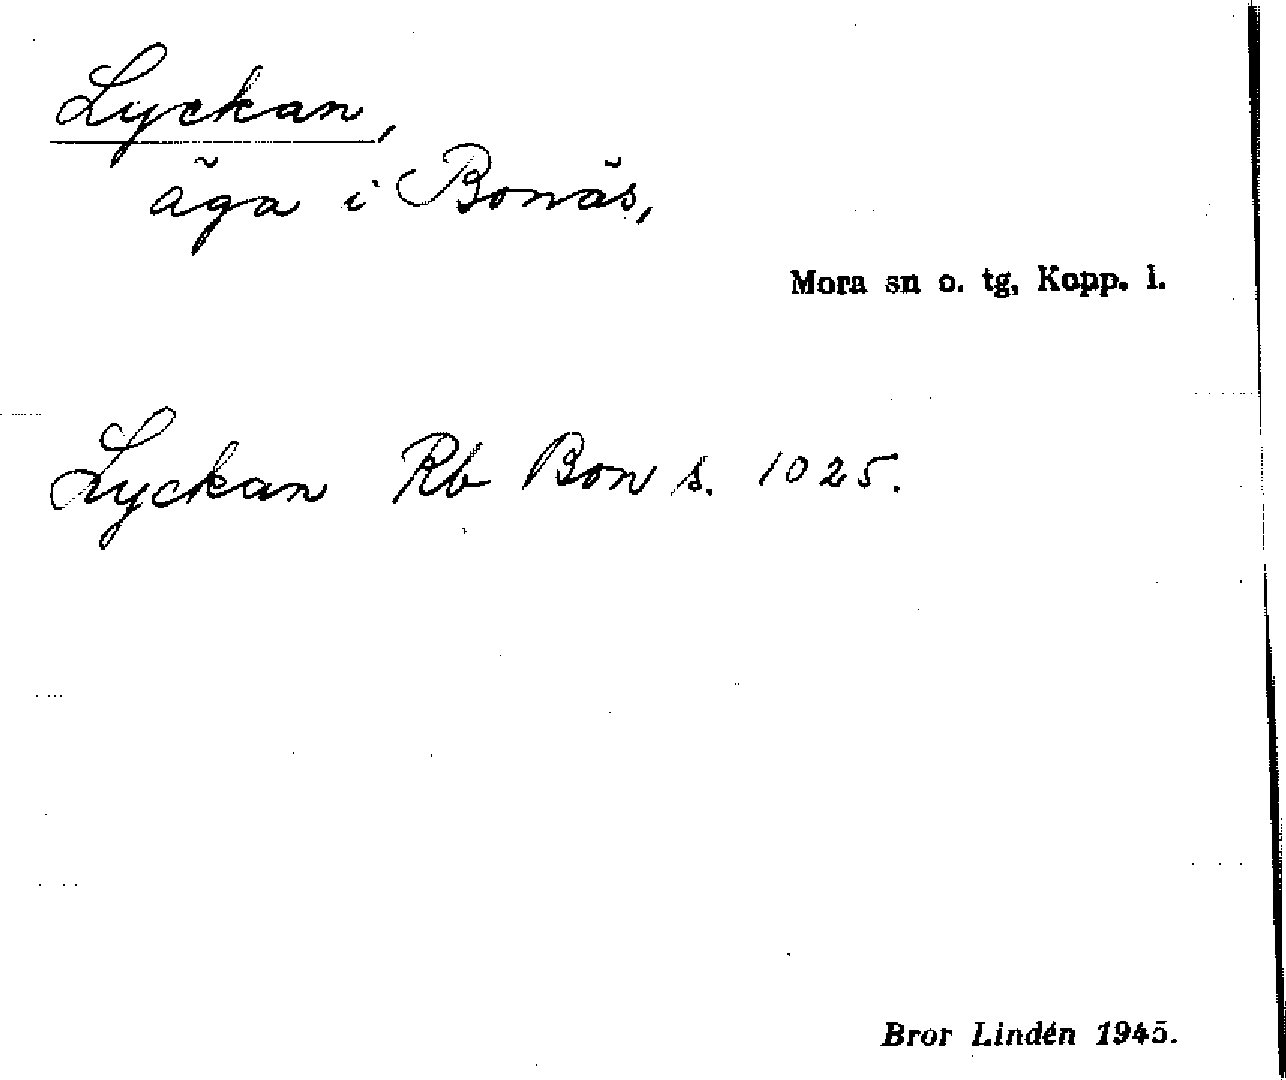 Lyckan,
äga i Bonäs,
Mora sn o. tg, Kopp. l.
Lyckan Rb Bon s. 1025.
Bror Lindén 1945.